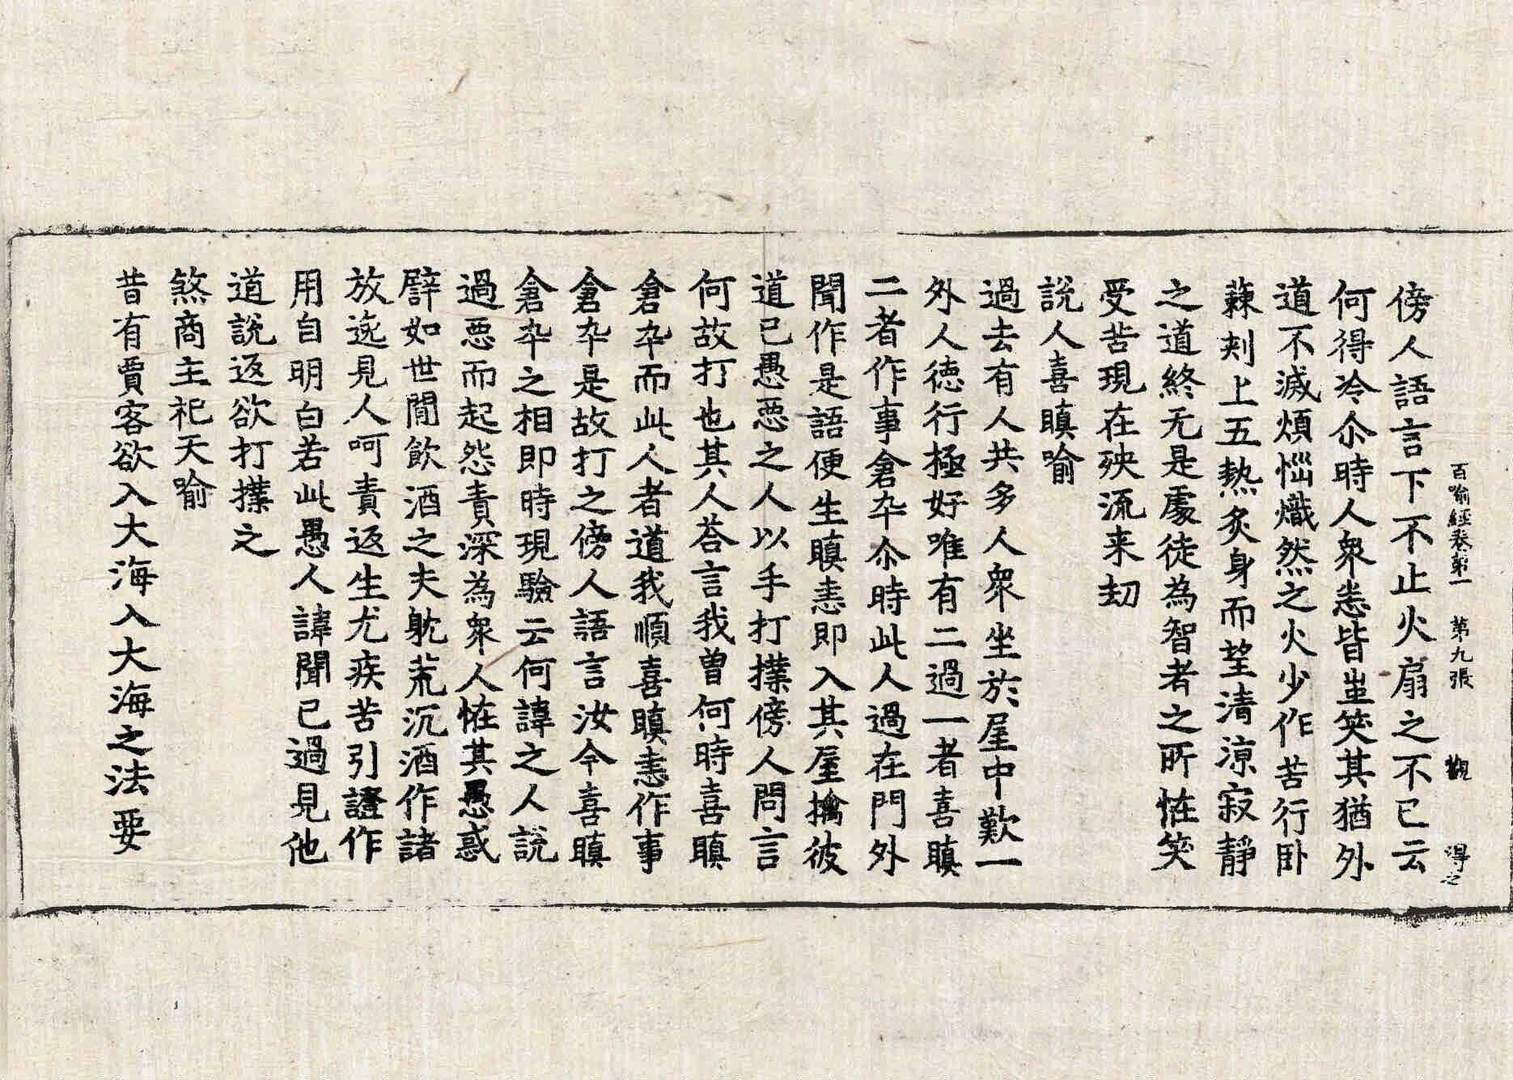 百喻經卷第一　第九張　觀　得之
傍人語言下不止火扇之不已云
何得冷尒時人衆恚皆蚩笑其猶外
道不滅煩惱熾然之火少作苦行卧
蕀刾上五熱炙身而望清涼寂靜
之道終无是處徒為智者之所恠笑
受苦現在殃流来劫
說人喜瞋喻
過去有人共多人衆坐於屋中歎一
外人徳行極好唯有二過一者喜瞋
二者作事倉卒尒時此人過在門外
聞作是語便生瞋恚即入其屋擒彼
道已愚惡之人以手打撲傍人問言
何故打也其人荅言我曾何時喜瞋
倉卒而此人者道我順喜瞋恚作事
倉卒是故打之傍人語言汝今喜瞋
倉卒之相即時現驗云何諱之人說
過惡而起怨責深為衆人恠其愚惑
譬如世閒飲酒之夫躭荒沉酒作諸
放逸見人呵責返生尤疾苦引證作
用自明白若此愚人諱聞已過見他
道說返欲打撲之
煞商主祀天喻
昔有賈客欲入大海入大海之法要